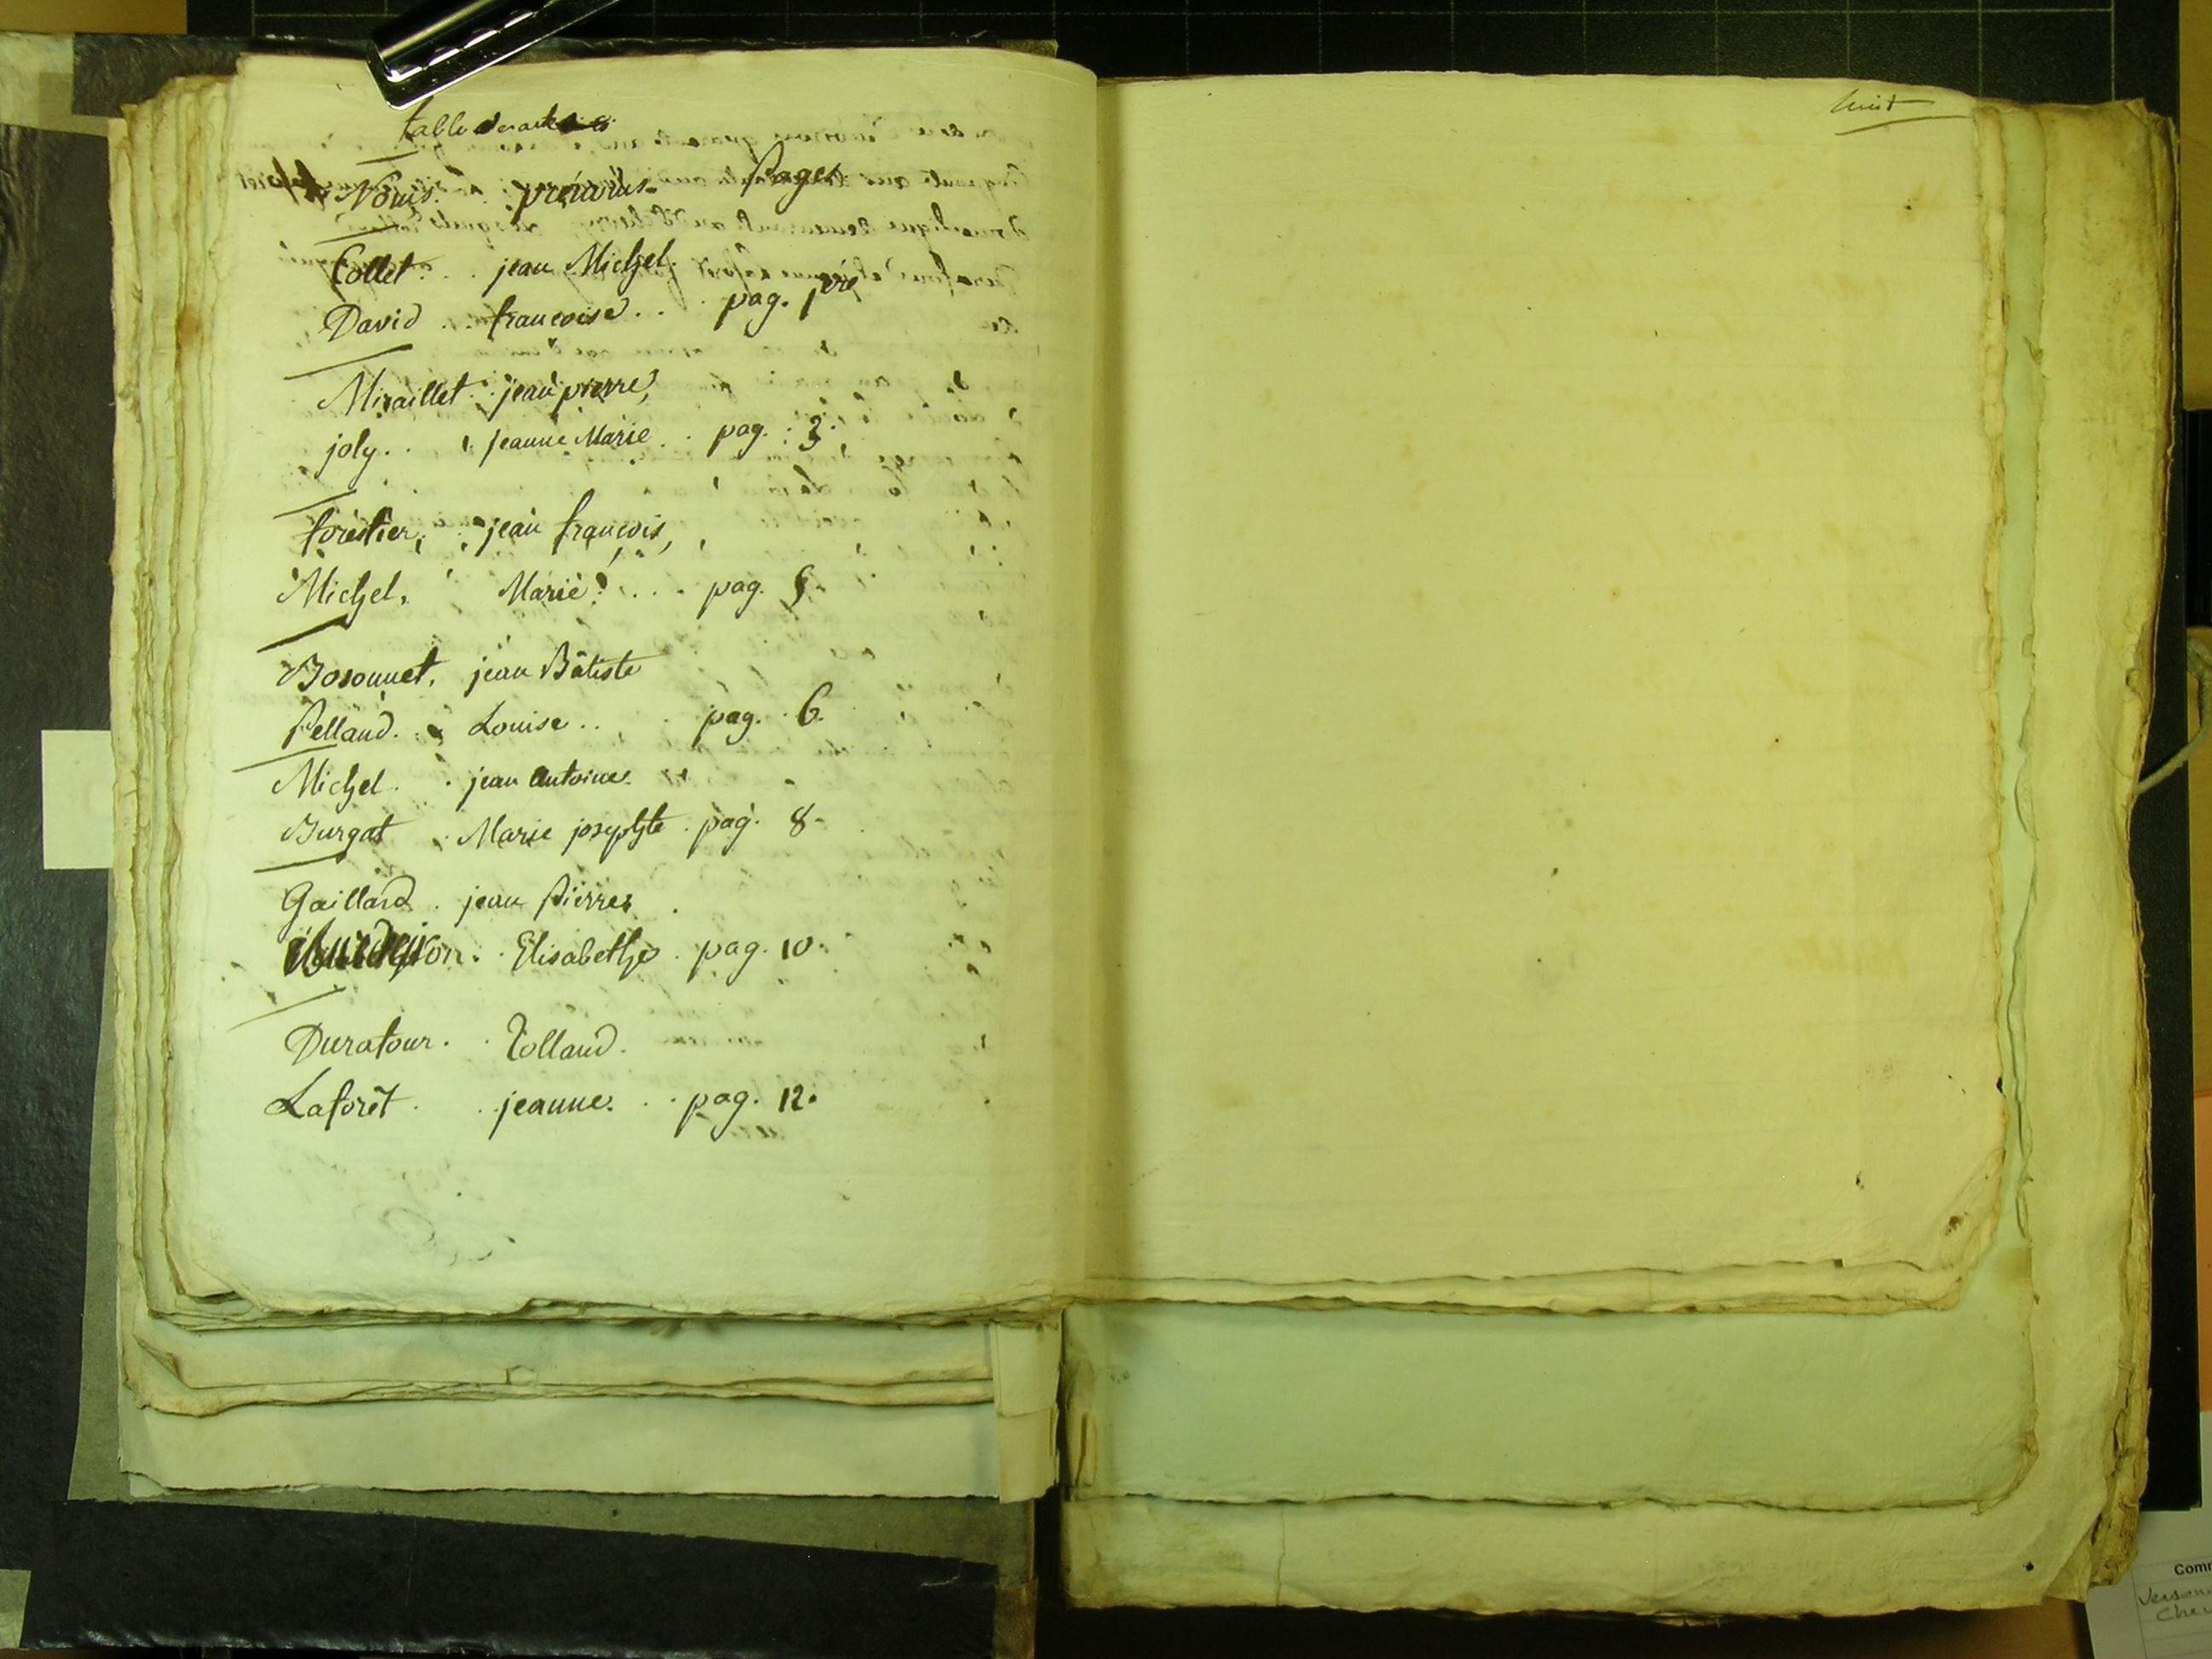 table des actes
Noms. prénoms. Pages
Collet. . . jean Michel.
David . . françoise. . . pag. 1ere
Miraillet . . jean pierre,
joly. . . jeanne Marie . . pag. 3.
forestier, jean françois,
Michel, Marie . . . pag. 5.
Bosonnet, jean Bâtiste
Pelland. . Louise . . . pag. 6.
Michel . . jean antoine.
Burgat . Marie josephte . pag. 8.
Gaillard . jean pierre .
Elisabethe . pag. 10.
Durafour . . Rolland.
Laforêt . . jeanne. . . pag. 12.
huit
Comm